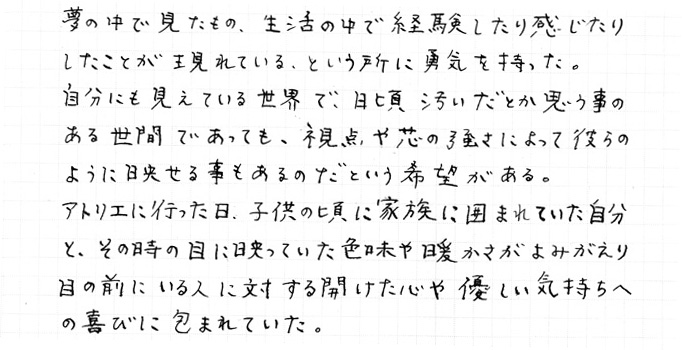 夢の中で見たもの、生活の中で経験したり感じたり
したことが現れている、という所に勇気を持った。
自分にも見えている世界で、日頃汚いだとか思う事の
ある世間であっても、視点や芯の強さによって彼らの
ように映せる事もあるのだという希望がある。
アトリエに行った日、子供の頃に家族に囲まれていた自分
と、その時の目に映っていた色味や暖かさがよみがえり
目の前にいる人に対する開けた心や優しい気持ちへ
の喜びに包まれていた。